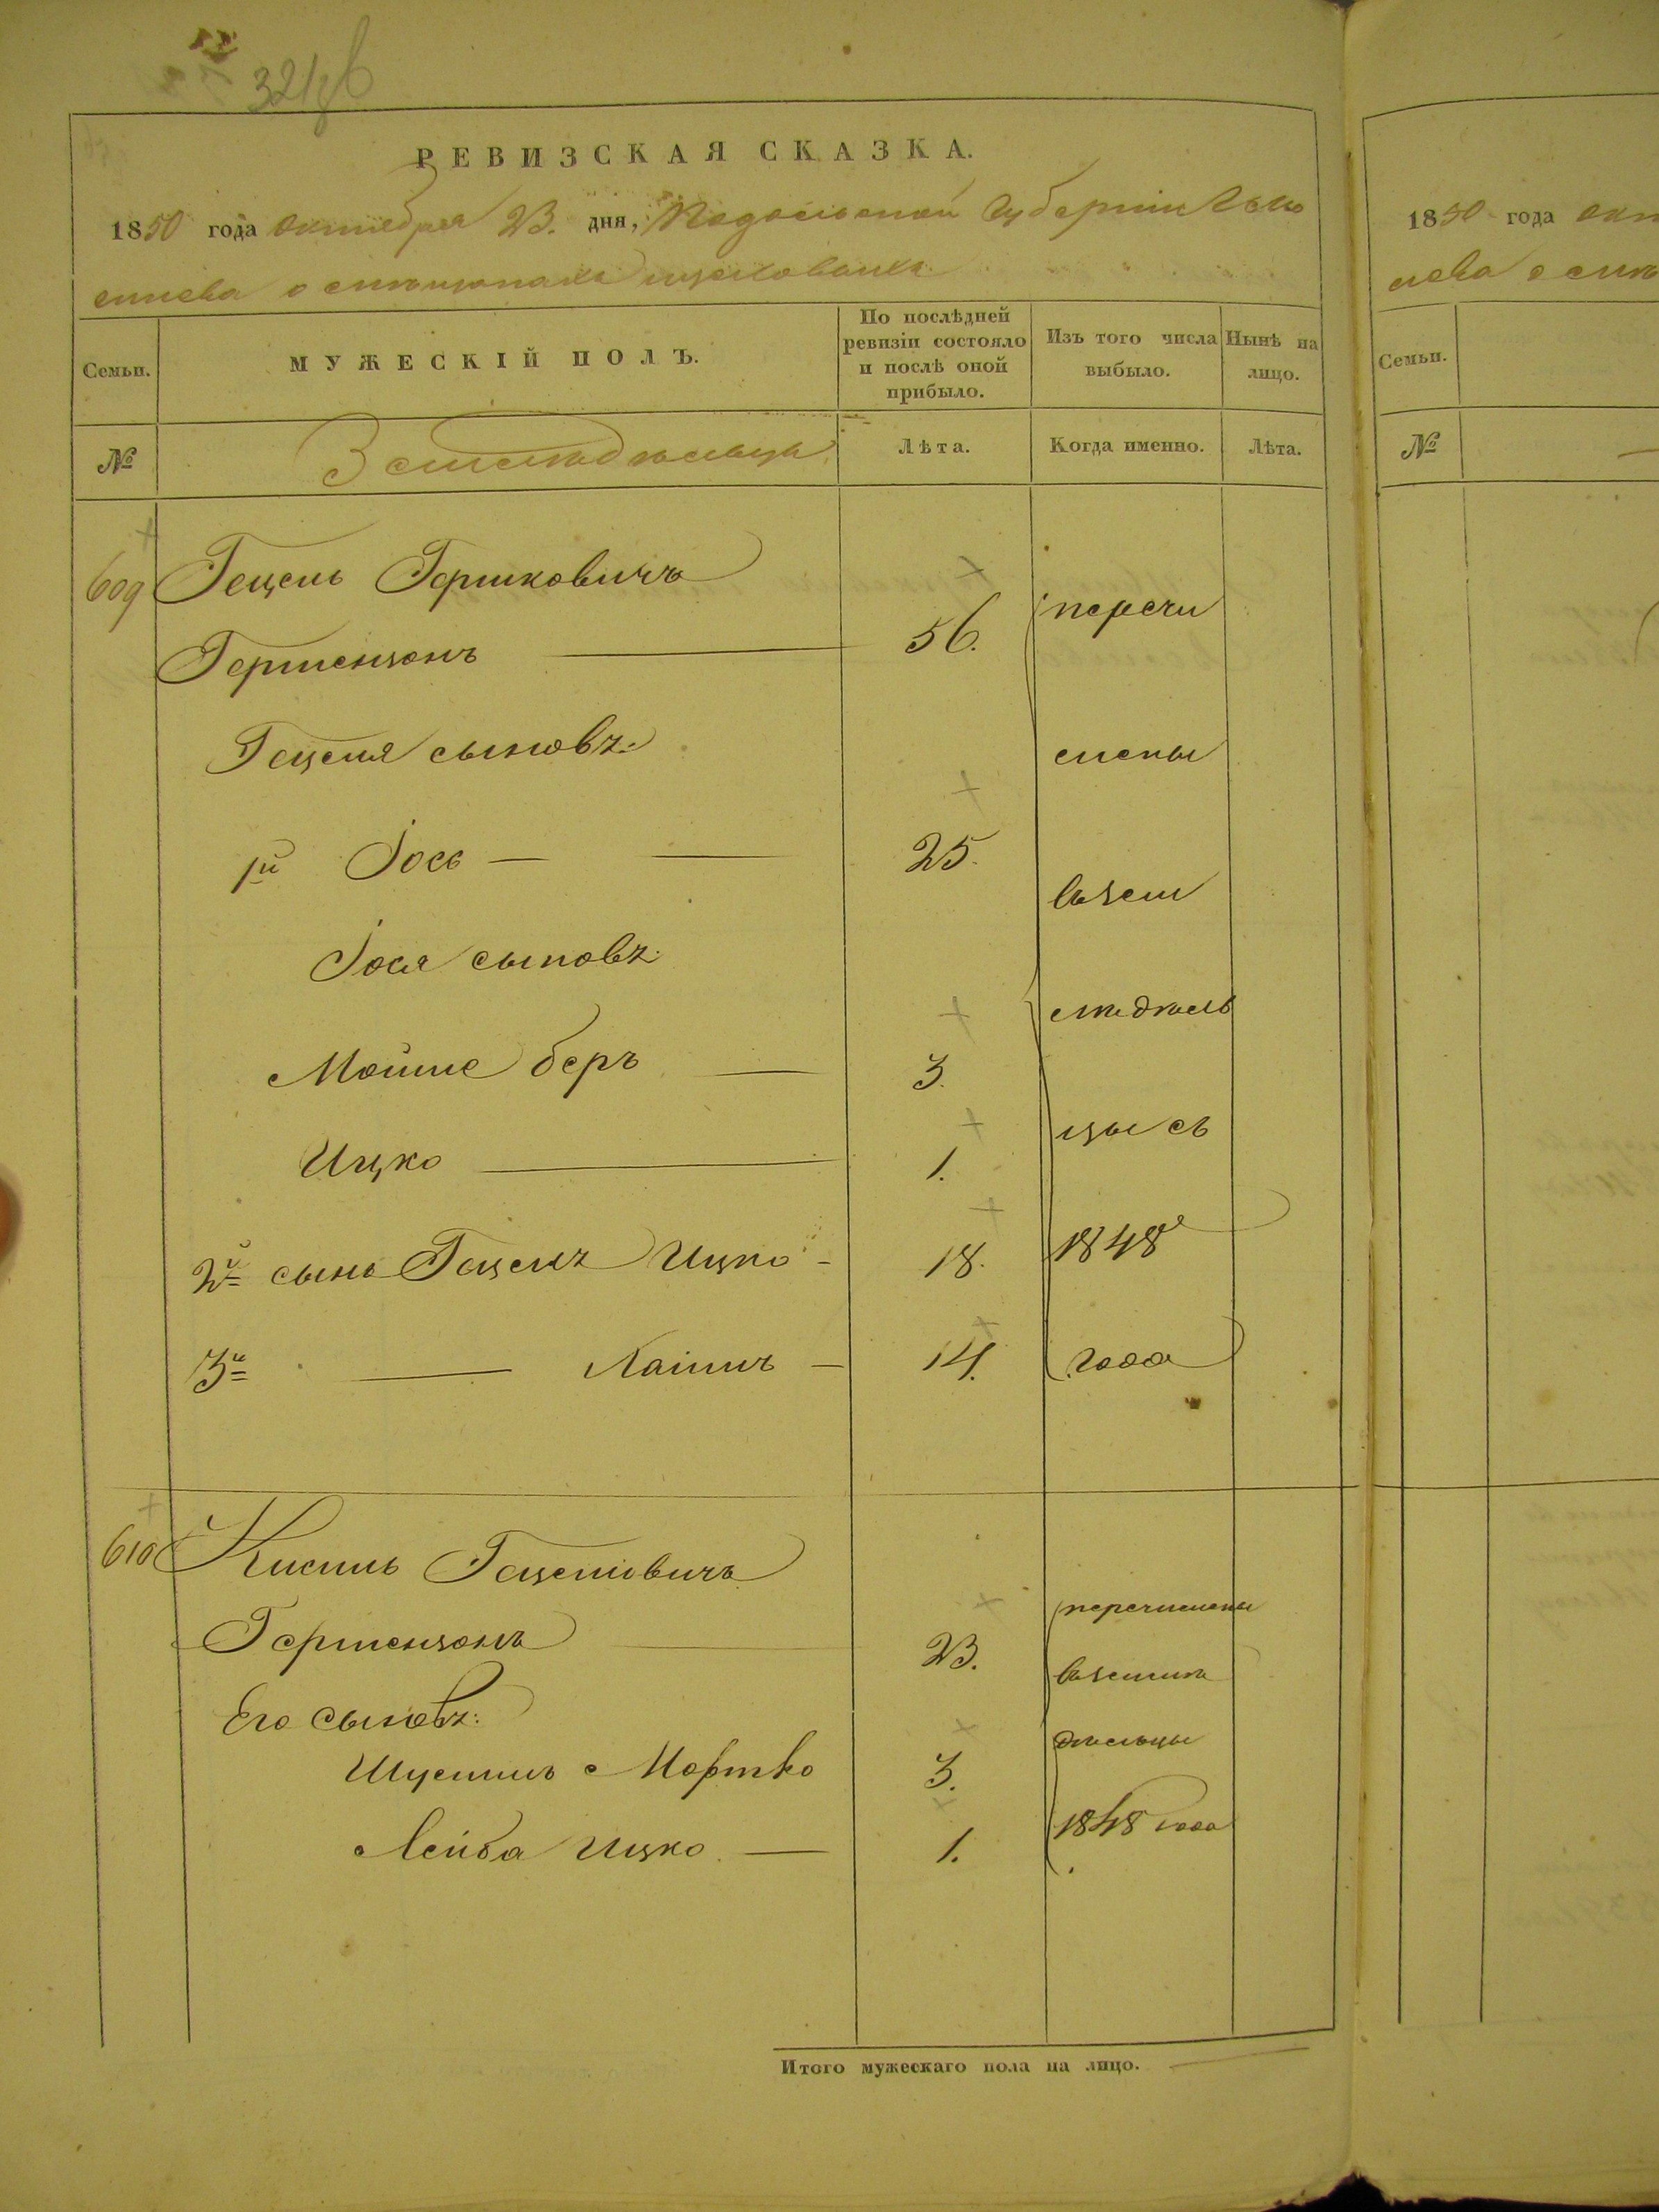 РЕВИЗСКАЯ СКАЗКА.
1850 года октября 23. дня, Подольской губернии
Семьи.
МУЖЕСКІЙ ПОЛЪ.
По послѣдней ревизіи состояло и послѣ оной прибыло.
Изъ того числа выбыло.
Нынѣ на лицо.
№
Земледѣльцы
Лѣта.
Когда именно.
Лѣта.
609 Гецель Гершковичъ
Гертенцонъ 56. перечи
Гецеля сыновъ: слены
1й Іось 25. въ зем
Іося сыновъ:
ледѣль
Мойше беръ 3.
цы съ
Ицко 1.
2й сынъ Гецеля Ицко 18. 1848
3й Хаимъ 14. года
610 Кисиль Гецелiовичъ
Гертенцонъ 23. перечислены
въ землѣ
Его сыновъ:
дѣльцы
Шуслимъ Мортко 3.
1848 года
Лейба Ицко 1.
Итого мужескаго пола на лицо.
1850 года
Семьи.
№